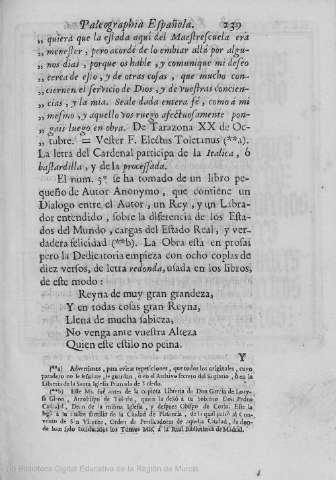 Paleographia Española. 239
„ quierá que la estada aqui del Maestrescuela erá
„ menester, pero acordé de lo embiar allá por algu-
„ nos dias, porque os hable, y comunique mi deseo
„ cerca de esto, y de otras cosas, que mucho con-
„ ciernen el servicio de Dios, y de vuestras concien-
„ cias, y la mia. Seale dada entera fé, como á mi
„ mesmo, y aquello vos ruego afectuosamente pon-
„ gais luego en obra. De Tarazona XX de Oc-
„ tubre. = Vester F. Electus Toletanus (**a).
La letra del Cardenal participa de la Italica, ó
bastardilla, y de la processada.
El num. 5º se ha tomado de un libro pe-
queño de Autor Anonymo, que contiene un
Dialogo entre el Autor, un Rey, y un Labra-
dor entendido, sobre la diferencia de los Esta-
dos del Mundo, cargas del Estado Real, y ver-
dadera felicidad (**b). La Obra está en prosa;
pero la Dedicatoria empieza con ocho coplas de
diez versos, de letra redonda, usada en los libros,
de este modo:
Reyna de muy gran grandeza,
Y en todas cosas gran Reyna,
Llena de mucha sabieza,
No venga ante vuestra Alteza
Quien este estilo no peina.
Y
(**a) Advertimos, para evitar repeticiones, que todos los originales, cuyo
paradero no se señalare, se guardan, ó en el Archivo Secreto del Sagrario, ó en la
Libreria de la Santa Iglesia Primada de Toledo.
(**b) Este Ms. fue antes de la copiosa Libreria de Don Garcia de Loaysa
Giron, Arzobispo de Toledo, quien la dejó á su Sobrino Don Pedro
Carbajal, Dean de la misma Iglesia, y despues Obispo de Coria. Este
á la noble familia de la Ciudad de Plasencia, de la qual pasó al Con-
vento de San Vicente, Orden de Predicadores de aquella Ciudad, de don-
de han sido trasladados los Tomos Mss. á la Real Biblioteca de Madrid.
(c) Biblioteca Digital Educativa de la Región de Murcia